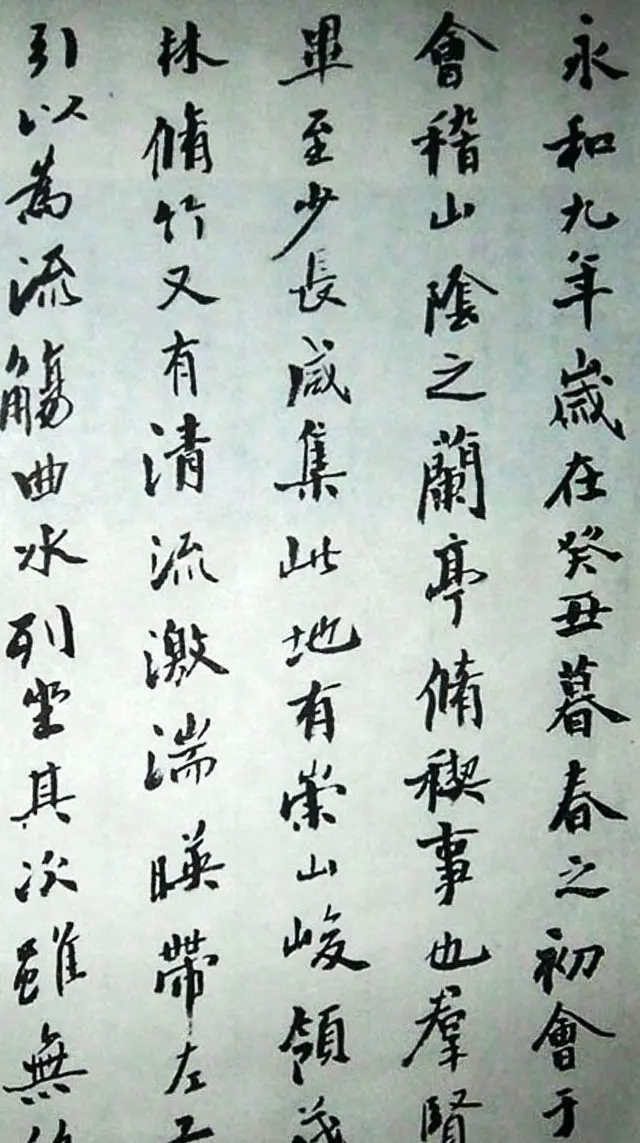 永和九年歲在癸丑暮春之初會于
會稽山陰之蘭亭脩稧事也羣賢
畢至少長咸集此地有崇山峻領茂
林脩竹又有清流激湍暎帶左右
引以為流觴曲水列坐其次雖無